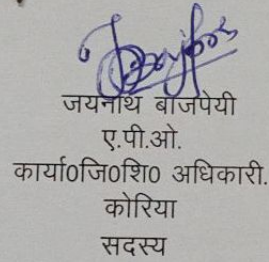 जयनाथ बाजपेयी
ए.पी.ओ.
कार्या०जि०शि० अधिकारी.
कोरिया
सदस्य